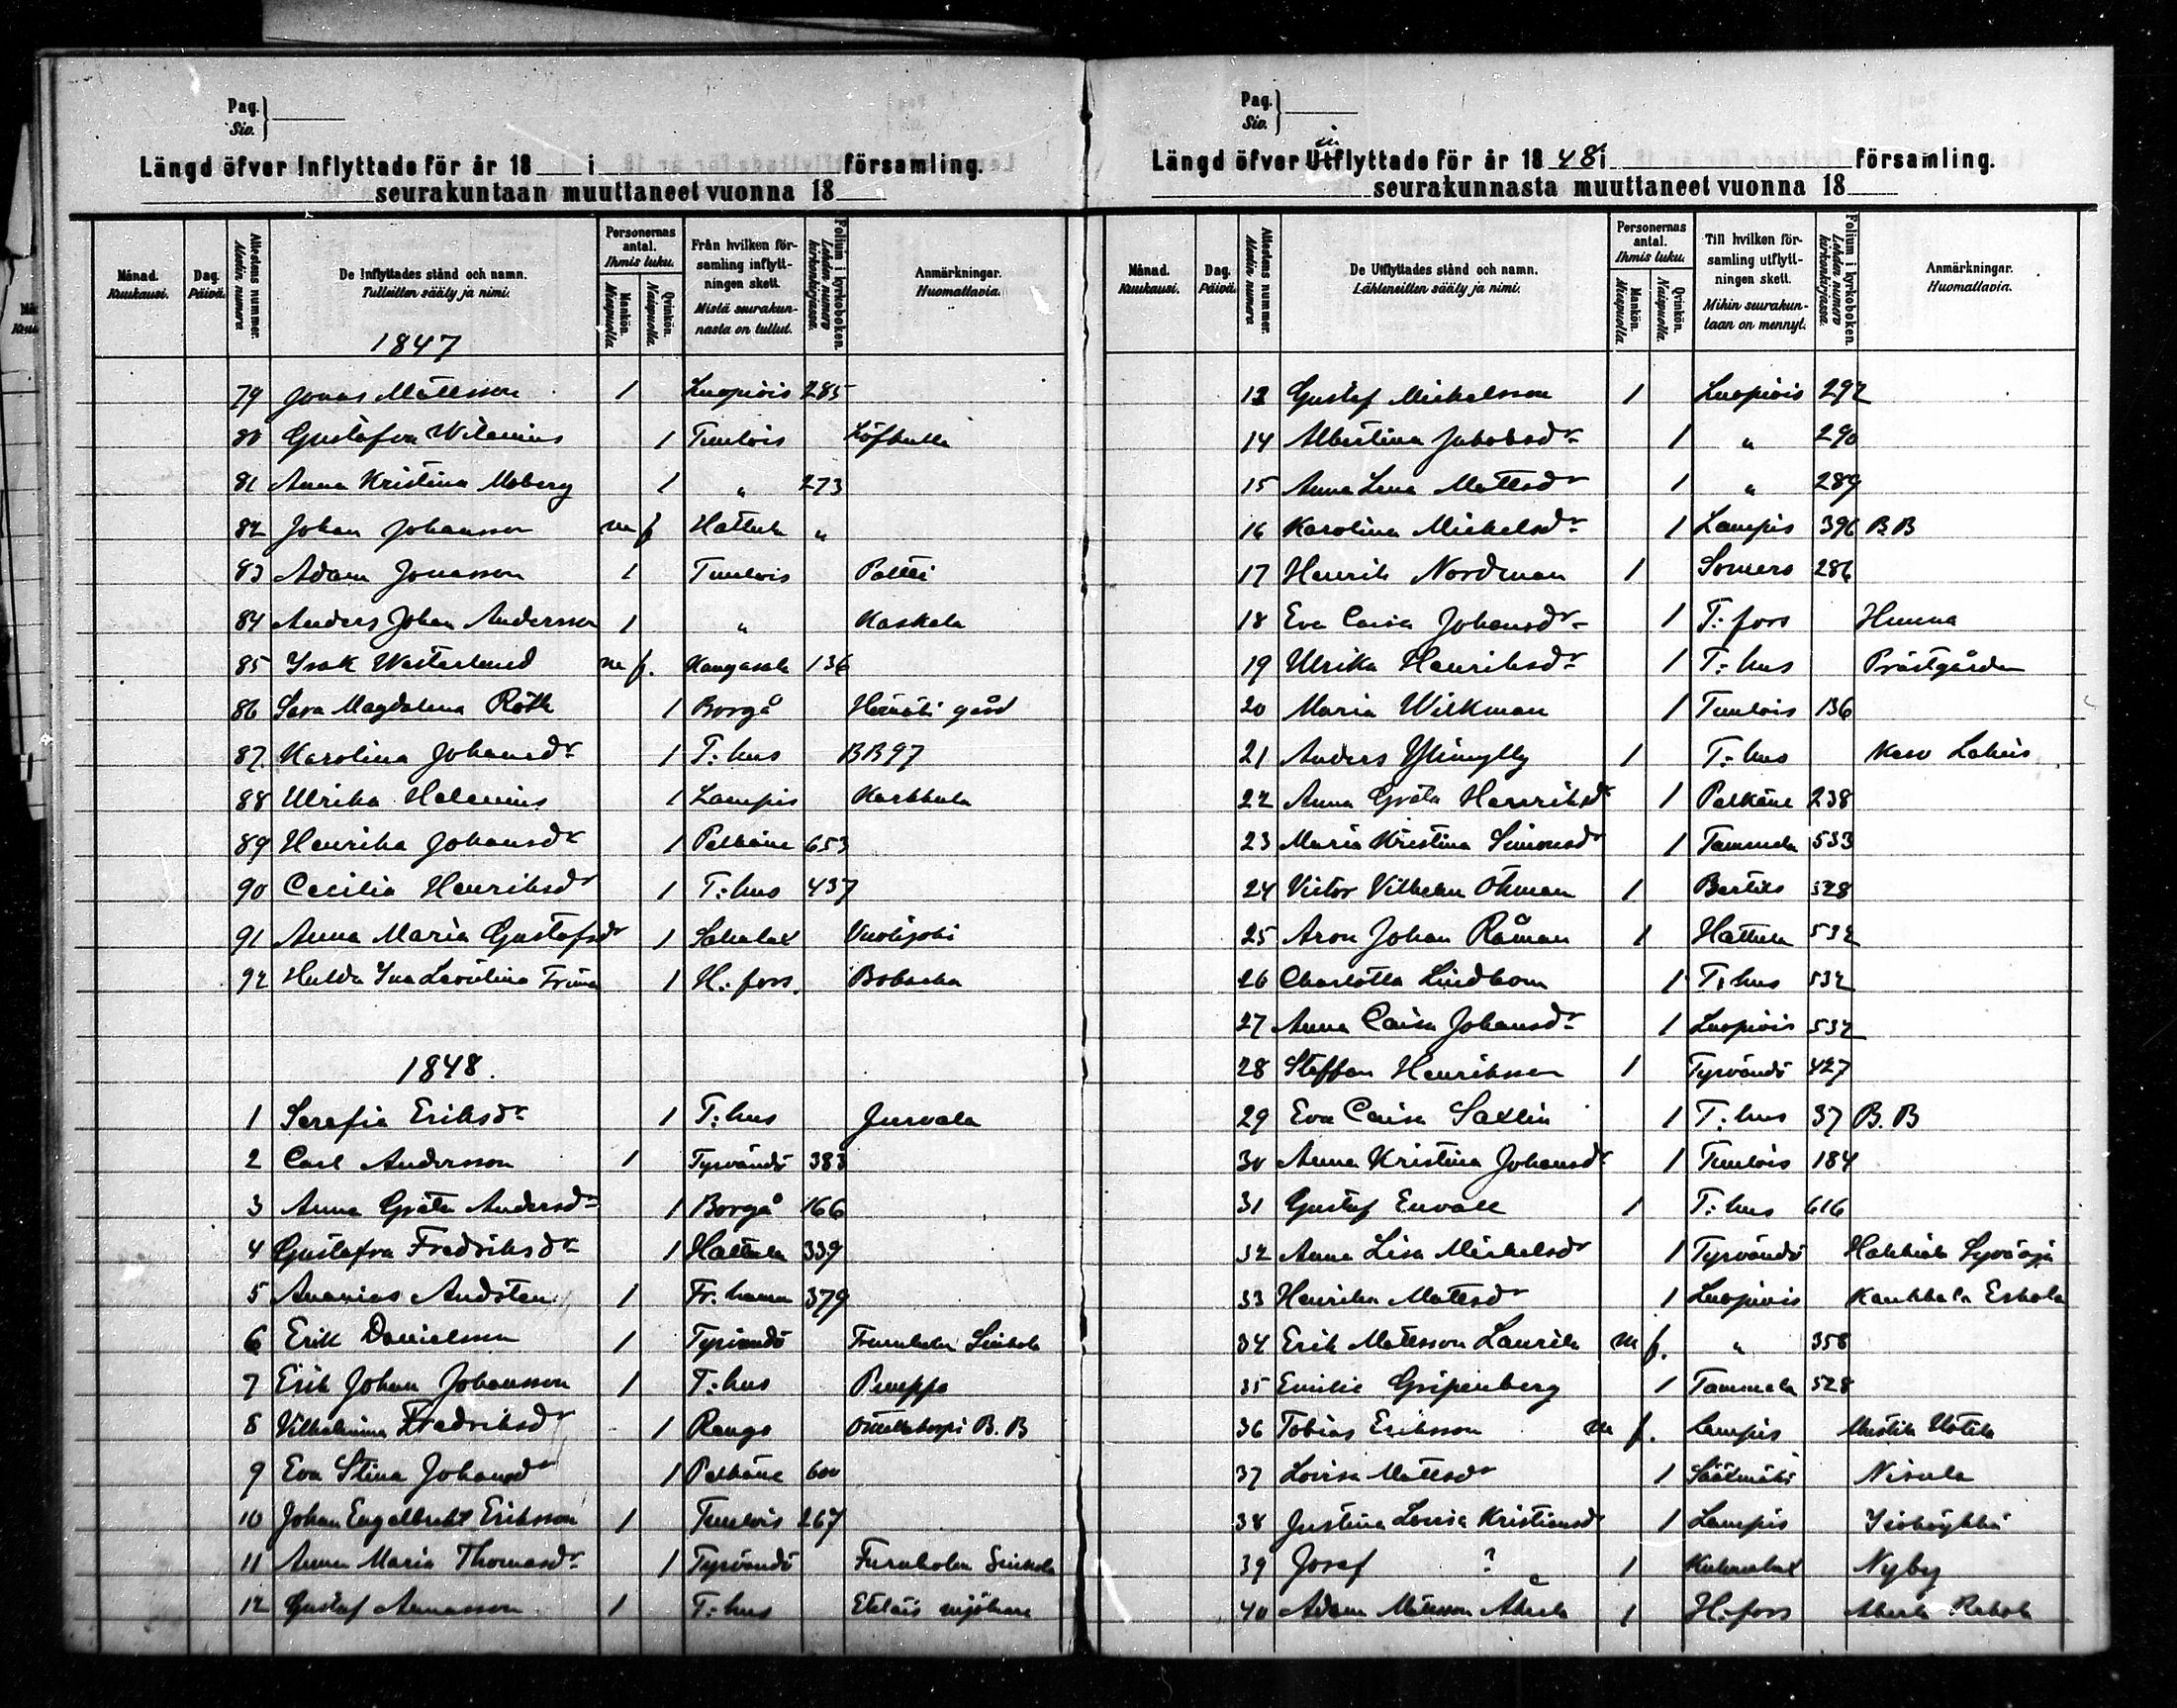 Pag.
Siv.
Längd öfver Inflyttade för år 18 i församling.
seurakuntaan muuttaneet vuonna 18
Månad. Kuukausi.
Dag. Päivä.
Attestens nummer. Atestin numero
De Inflyttades stånd och namn. Tulleitten sääty ja nimi.
Personernas antal. Ihmis luku.
Mankön. Miespuolia
Qvinkön. Naispuolia.
Från hvilken församling inflyttningen skett. Mistä seurakunnasta on tullut.
Folium i kyrkoboken. Lehden numero kirkonkirjassa.
Anmärkningar. Huomattavia.
1847
79 Jonas Mattsson 1 Luopiois 285
80 Gustafva Wilenius 1 Tuulois
81 Anna Kristina Moberg 1 " 273
82 Johan Johansson m f Hattula "
83 Adam Jonasson 1 Tuulois Pattei
84 Anders Johan Andersson 1 " Kaskela
85 Isak Westerlund m f. Kangasala 136
86 Sara Magdalena Röth 1 Borgå gård
87 Karolina Johansdr 1 T:hus BB97
88 Ulrika Helenius 1 Lampis Karkkula
89 Henrika Johansdr 1 Pelkäne 653
90 Cecilia Henriksdr 1 T:hus 437
91 Anna Maria Gustafsdr 1 Sahalax Vuolijoki
92 Hulda Lovina 1 H:fors.
1848.
1 Serafia Eriksdr 1 T:hus Jurvala
2 Carl Andersson 1 Tyrvändö 383
3 Anna Greta Andersdr 1 Borgå 166
4 Gustafva Fredriksdr 1 Hattula 339
5 Ananias Andsten 1 Fr:hamn 379
6 Erik Danielsson 1 Tyrvändö Sinkola
7 Erik Johan Johansson 1 T:hus Pumppo
8 Vilhelmina Fredriksdr 1 Rengo B.B
9 Eva Stina Johansdr 1 Pelkäne 600
10 Johan Engelbrekt Eriksson 1 Tuulois 267
11 Anna Maria Thomasdr 1 Tyrvändö Furuholm Sinkola
12 Gustaf Annasson 1 T:hus Eteläis mjölnare
Pag.
Siv.
in
Längd öfver Utflyttade för år 18 48 i församling.
seurakunnasta muuttaneet vuonna 18
Månad. Kuukausi.
Dag. Päivä.
Attestens nummer. Atestin numero
De Utflyttades stånd och namn. Lähteneitten sääty ja nimi.
Personernas antal. Ihmis luku.
Mankön. Miespuolia
Qvinkön. Naispuolia.
Till hvilken församling utflyttningen skett. Mihin seurakuntaan on mennyt.
Folium i kyrkoboken. Lehden numero kirkonkirjassa.
Anmärkningar. Huomattavia.
13 Gustaf Mickelsson 1 Luopiois 292
14 Albertina Jakobsdr 1 " 290
15 Anna Lena Mattsdr 1 " 289
16 Karolina Mickelsdr 1 Lampis 396 BB
17 Henrik Nordman 1 Somero 286
18 Eva Caisa Johansdr 1 T:fors Hunna
19 Ulrika Henriksdr 1 T:hus Prästgården
20 Maria Wilkman 1 Tuulois 136
21 Anders Ylimylly 1 T:hus
22 Anna Greta Henriksdr 1 Pelkäne 238
23 Maria Kristina Simonsdr 1 Tammela 533
24 Victor Vilhelm Öhman 1 528
25 Aron Johan Råman 1 Hattula 532
26 Charlotta Lindbom 1 T:hus 532
27 Anna Caisa Johansdr 1 Luopiois 532
28 Staffan Henriksson 1 Tyrvändö 427
29 Eva Caisa Sallin 1 T:hus 37 B.B
30 Anna Kristina Johansdr 1 Tuulois 184
31 Gustaf Envall 1 T:hus 616
32 Anna Lisa Mickelsdr 1 Tyrvändö Syväoja
33 Henrika Mattsdr 1 Luopiois Eskola
34 Erik Mattsson Laurila m f. " 358
35 Emilie Gripenberg 1 Tammela 528
36 Tobias Eriksson m f. Lampis
37 Lovisa Mattsdr 1 Sääksmäki Nisula
38 Justina Lovisa Kristiansdr 1 Lampis
39 Josef ? 1 Kuhmalax Nyby
40 Adam Mattsson Åkerla 1 H:fors